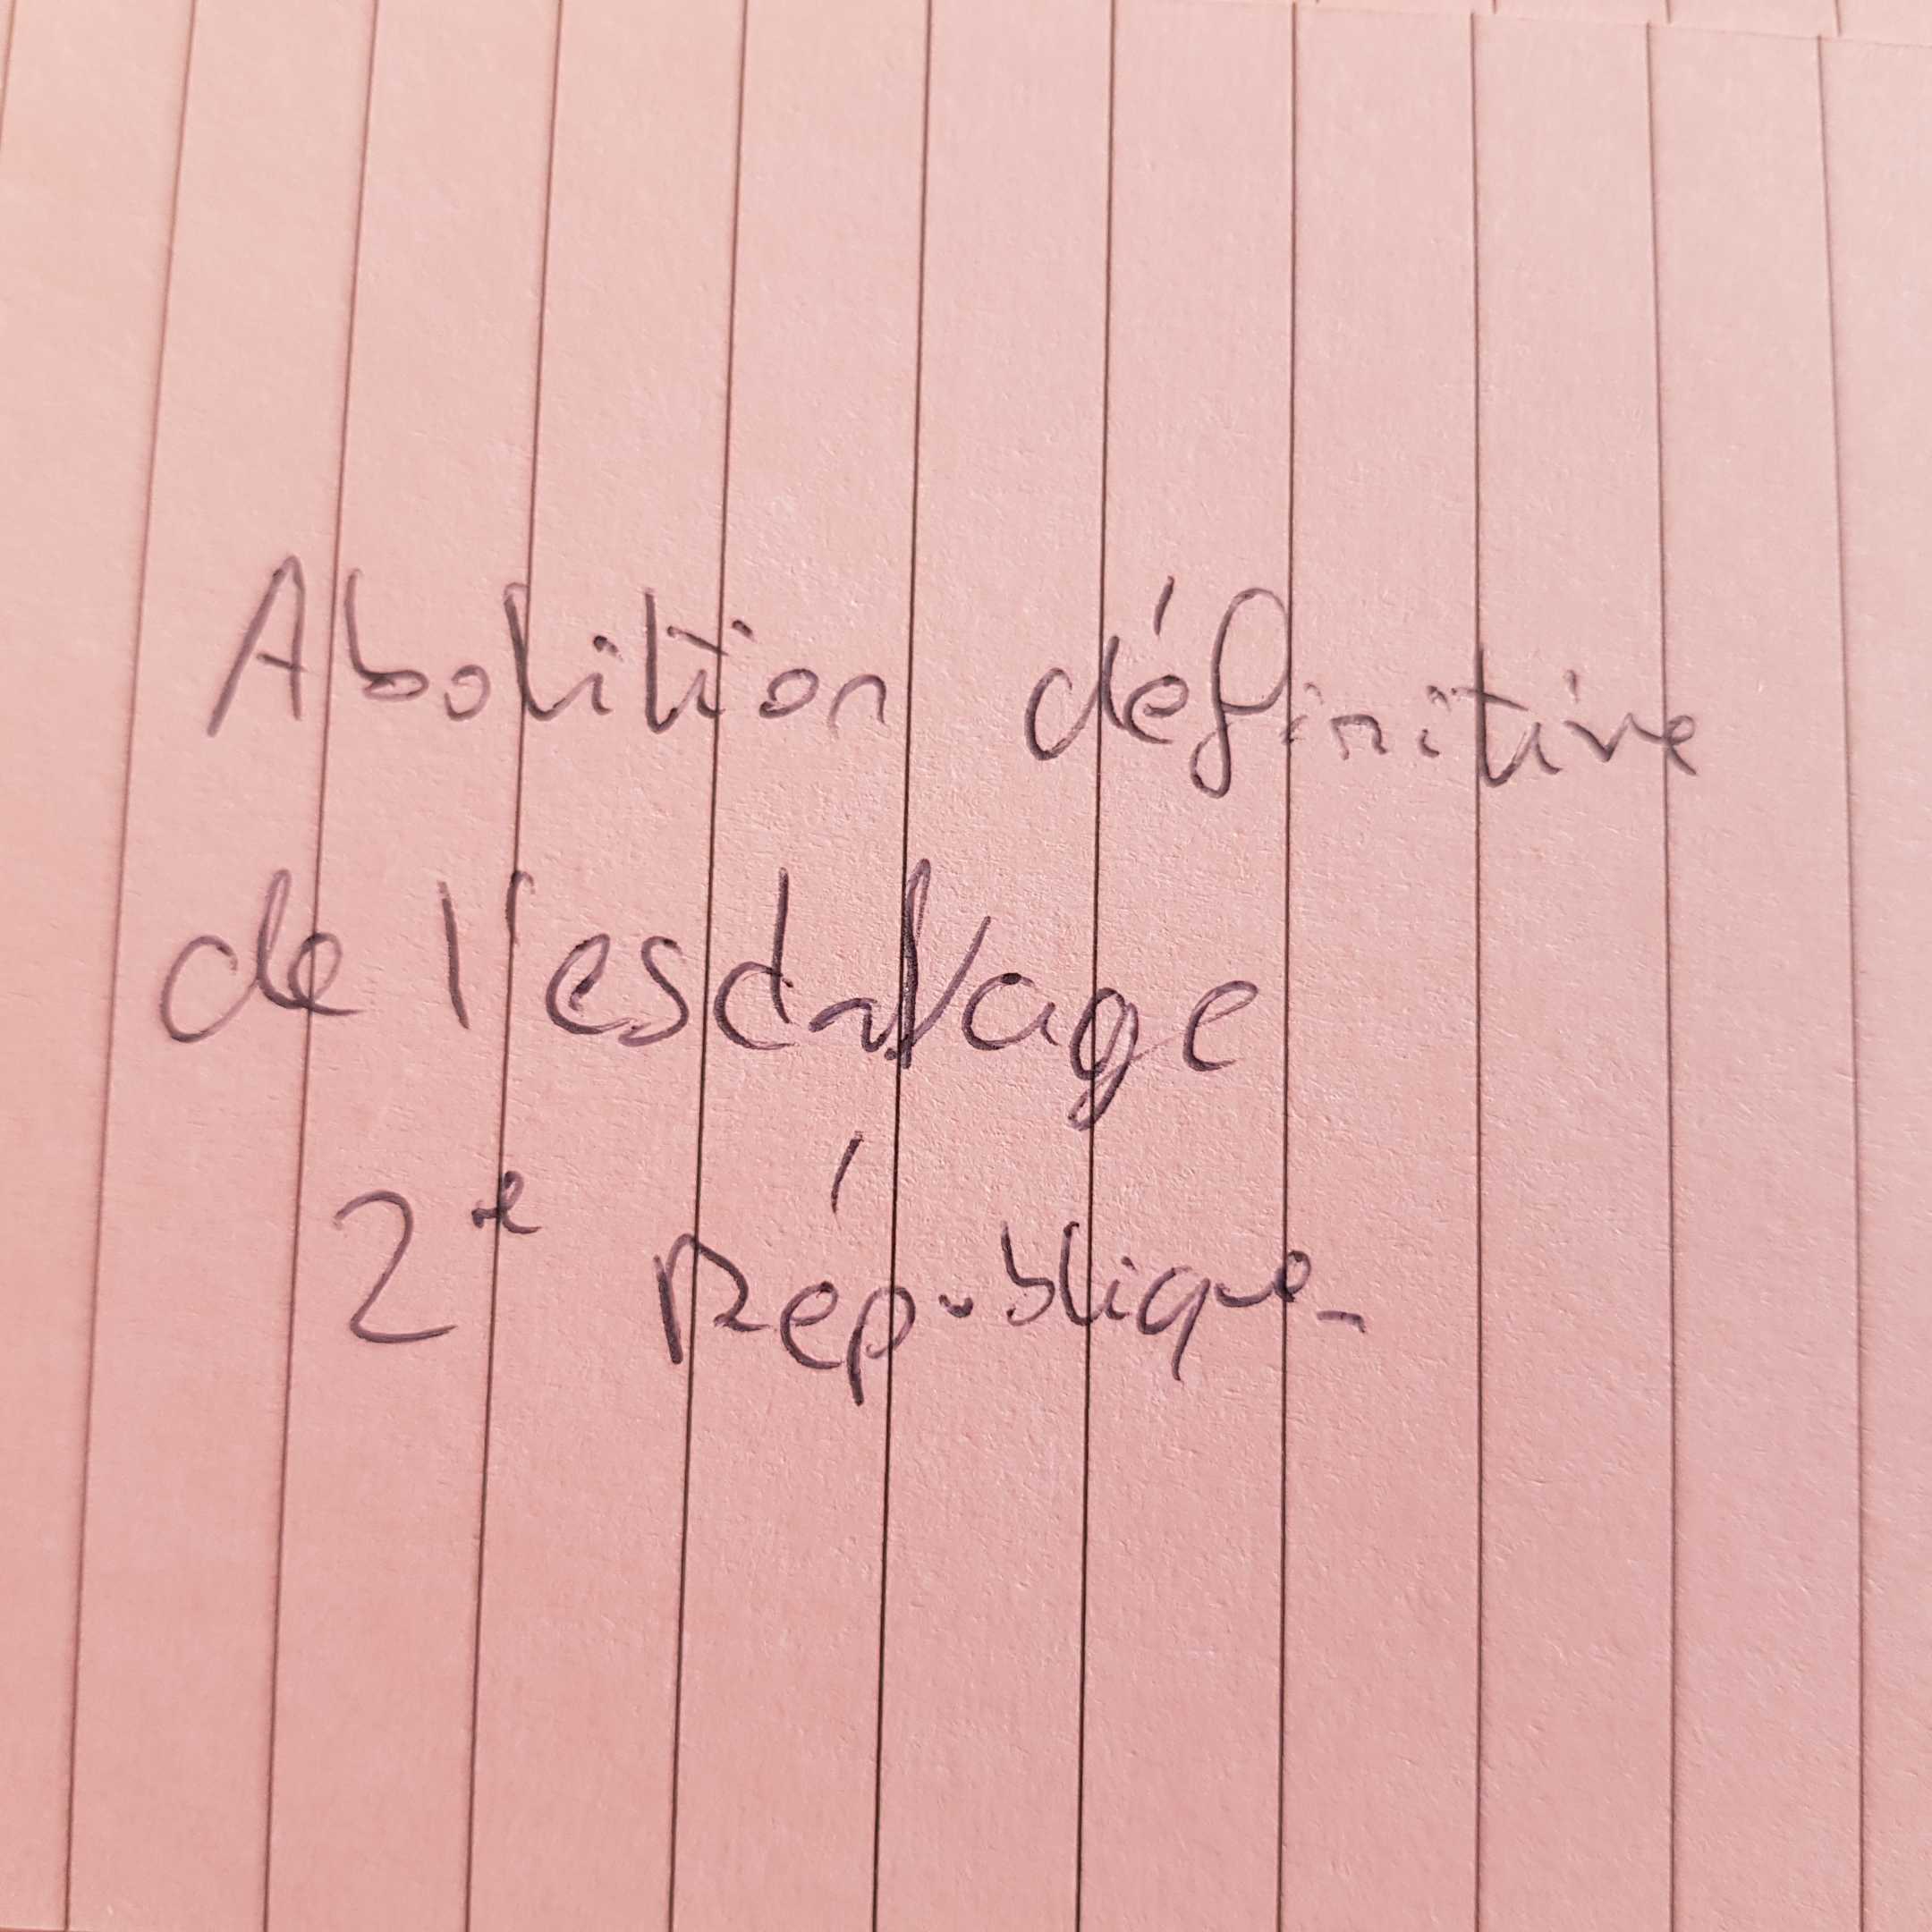 Abolition définitive
de l'esclavage
2e République